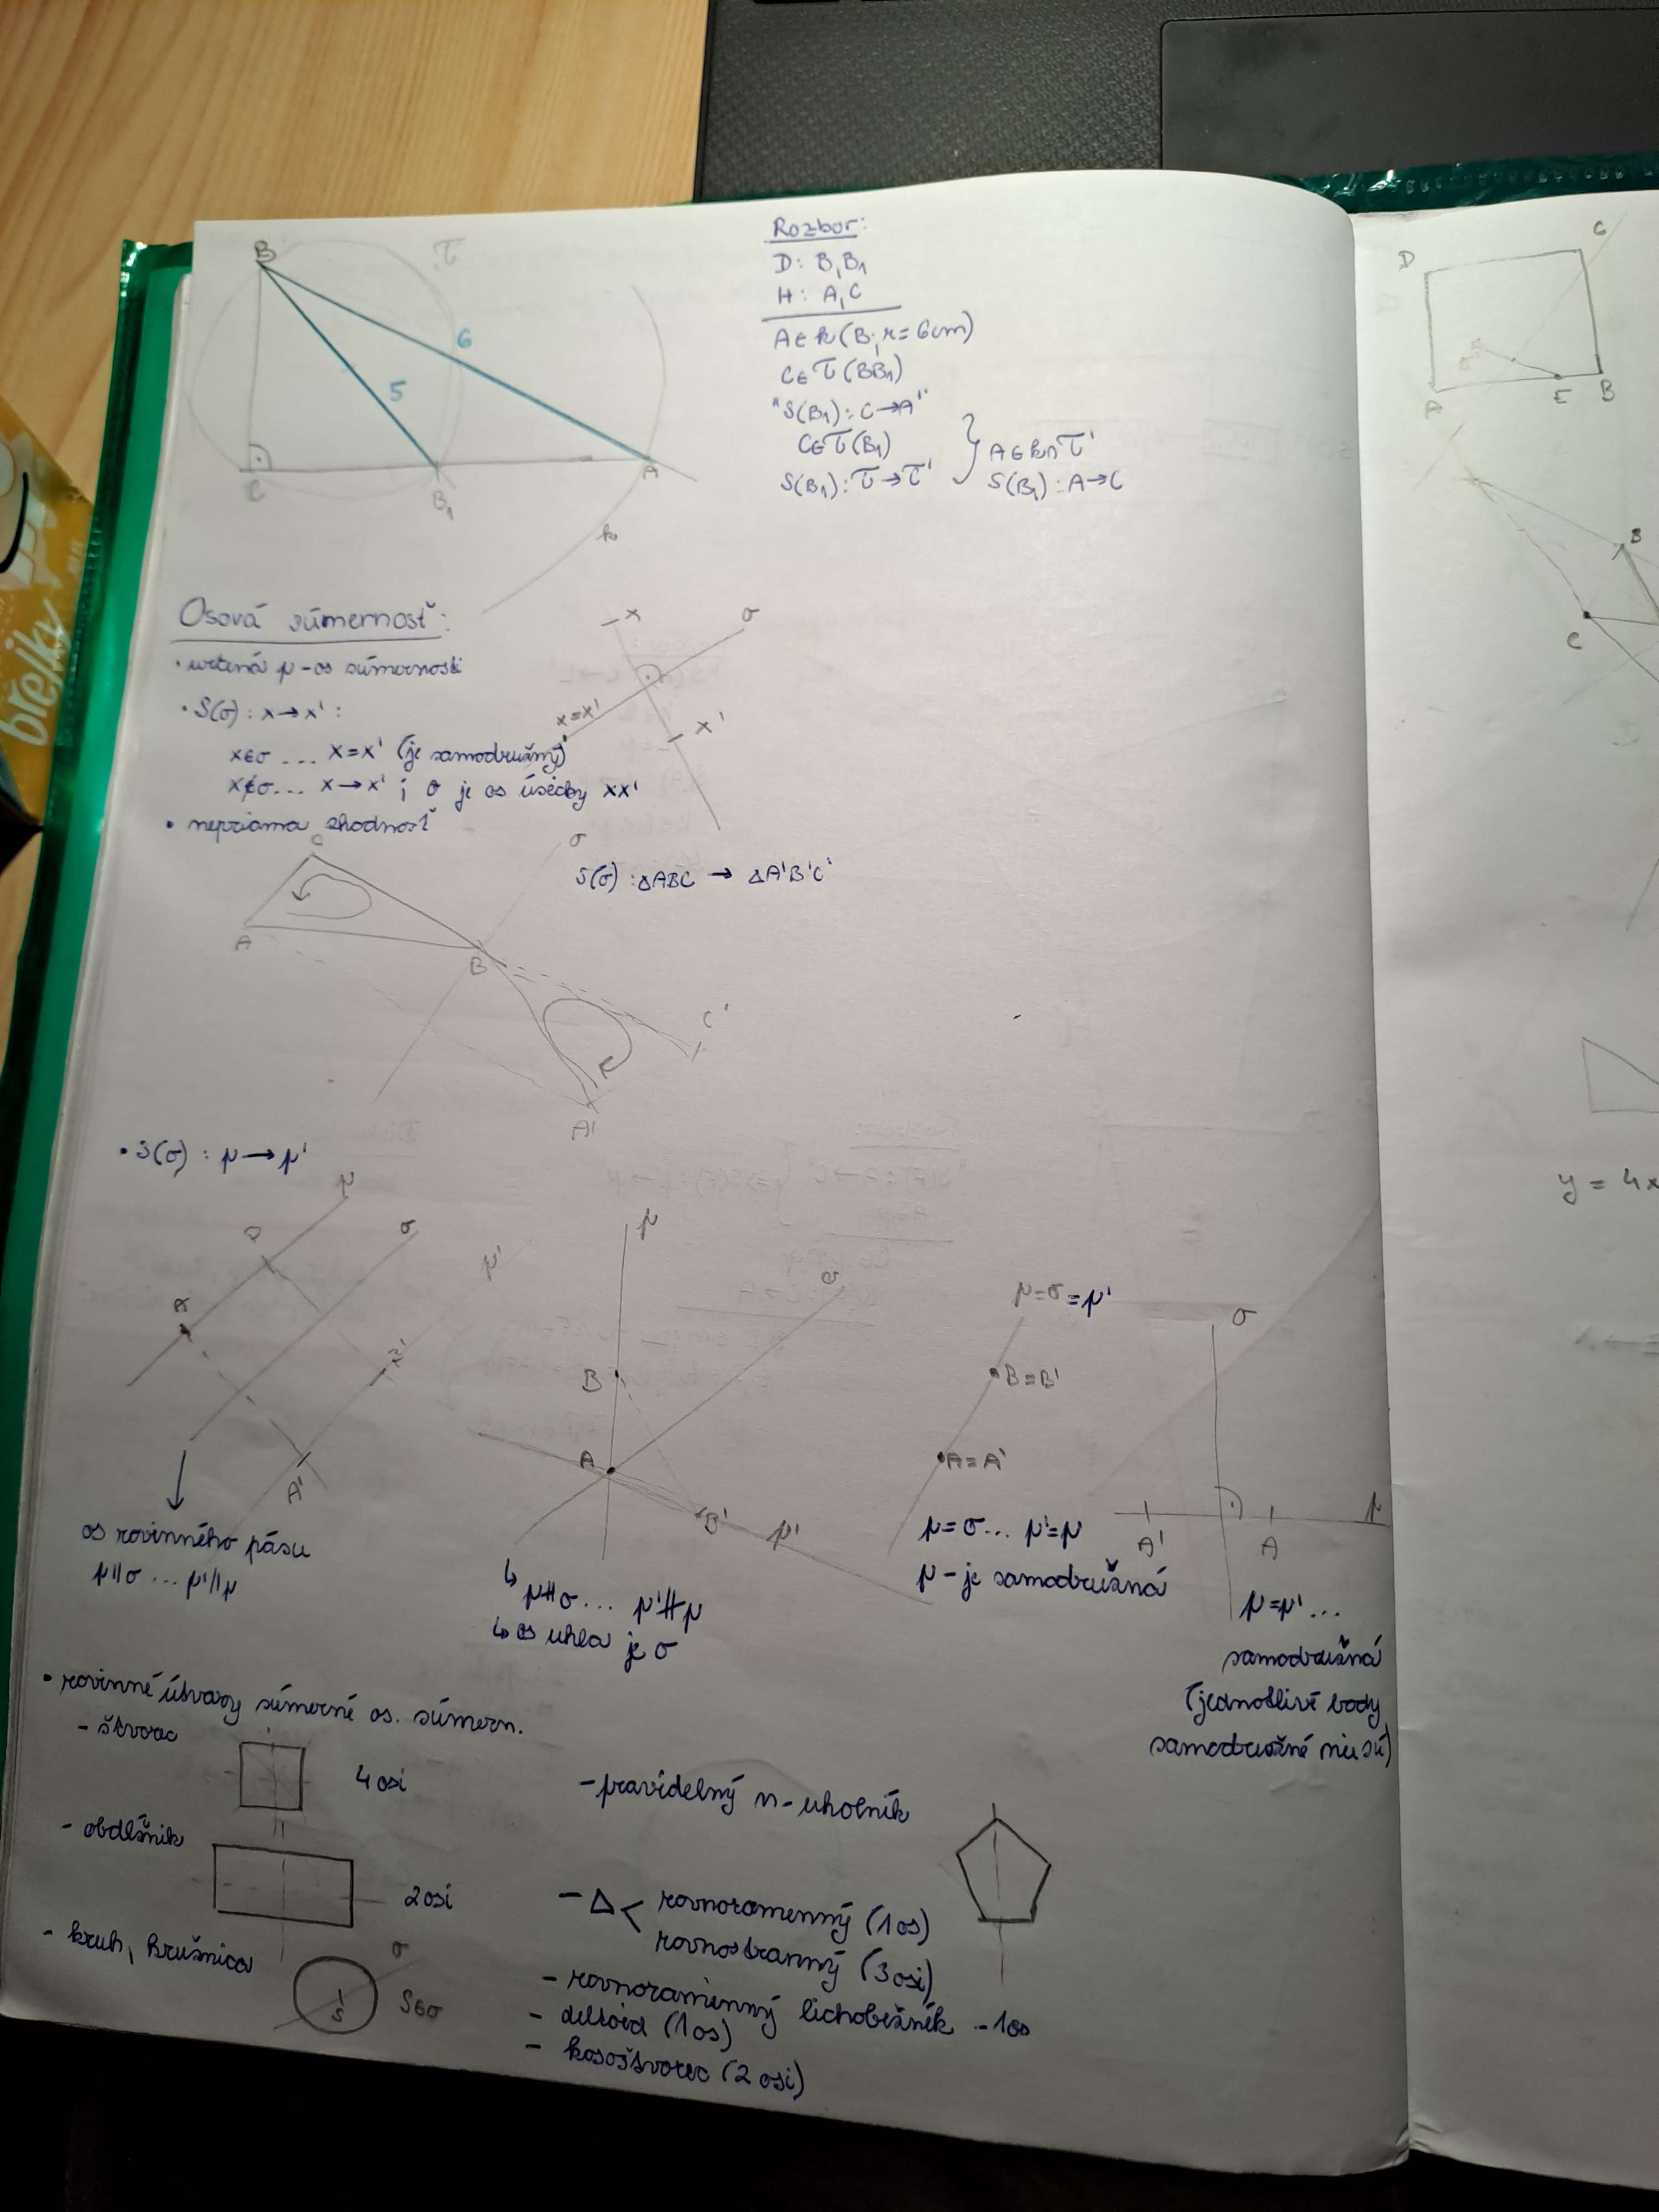 B
τ
6
5
C
B₁
A
k
Rozbor:
D: B, B₁
H: A, C
A∈k(B; r=6cm)
C∈τ(BB₁)
"S(B₁): C→A"
C∈τ(B₁)
S(B₁): τ→τ'
A∈k∩τ'
S(B₁): A→C
Osová súmernosť:
• určená p-os súmernosti
• S(σ): x→x':
x∈σ ... x=x' (je samodružný)
x∉σ... x→x' ; σ je os úsečky xx'
• nepriama zhodnosť
x
σ
x=x'
x'
C
σ
S(σ): ΔABC → ΔA'B'C'
A
B
C'
A'
• S(σ): p→p'
p
σ
p'
A'
os rovinného pásu
p∥σ ... p'∥p
p
σ
B
A
B'
p'
↳ p∦σ... p'∦p
↳ os uhla je σ
p=σ=p'
B=B'
A=A'
p=σ... p'=p
p - je samodružná
σ
A'
A
p
p=p'...
samodružná
(jednotlivé body
samodružné nie sú)
• rovinné útvary súmerné os. súmern.
- štvorec
4 osi
- obdĺžnik
2 osi
- kruh, kružnica
σ
S
S∈σ
- pravidelný n-uholník
- Δ < rovnoramenný (1 os)
rovnostranný (3 osi)
- rovnoramenný lichobežník - 1os
- deltoid (1 os)
- kosoštvorec (2 osi)
D
C
E
B
B
C
y = 4x
břejky